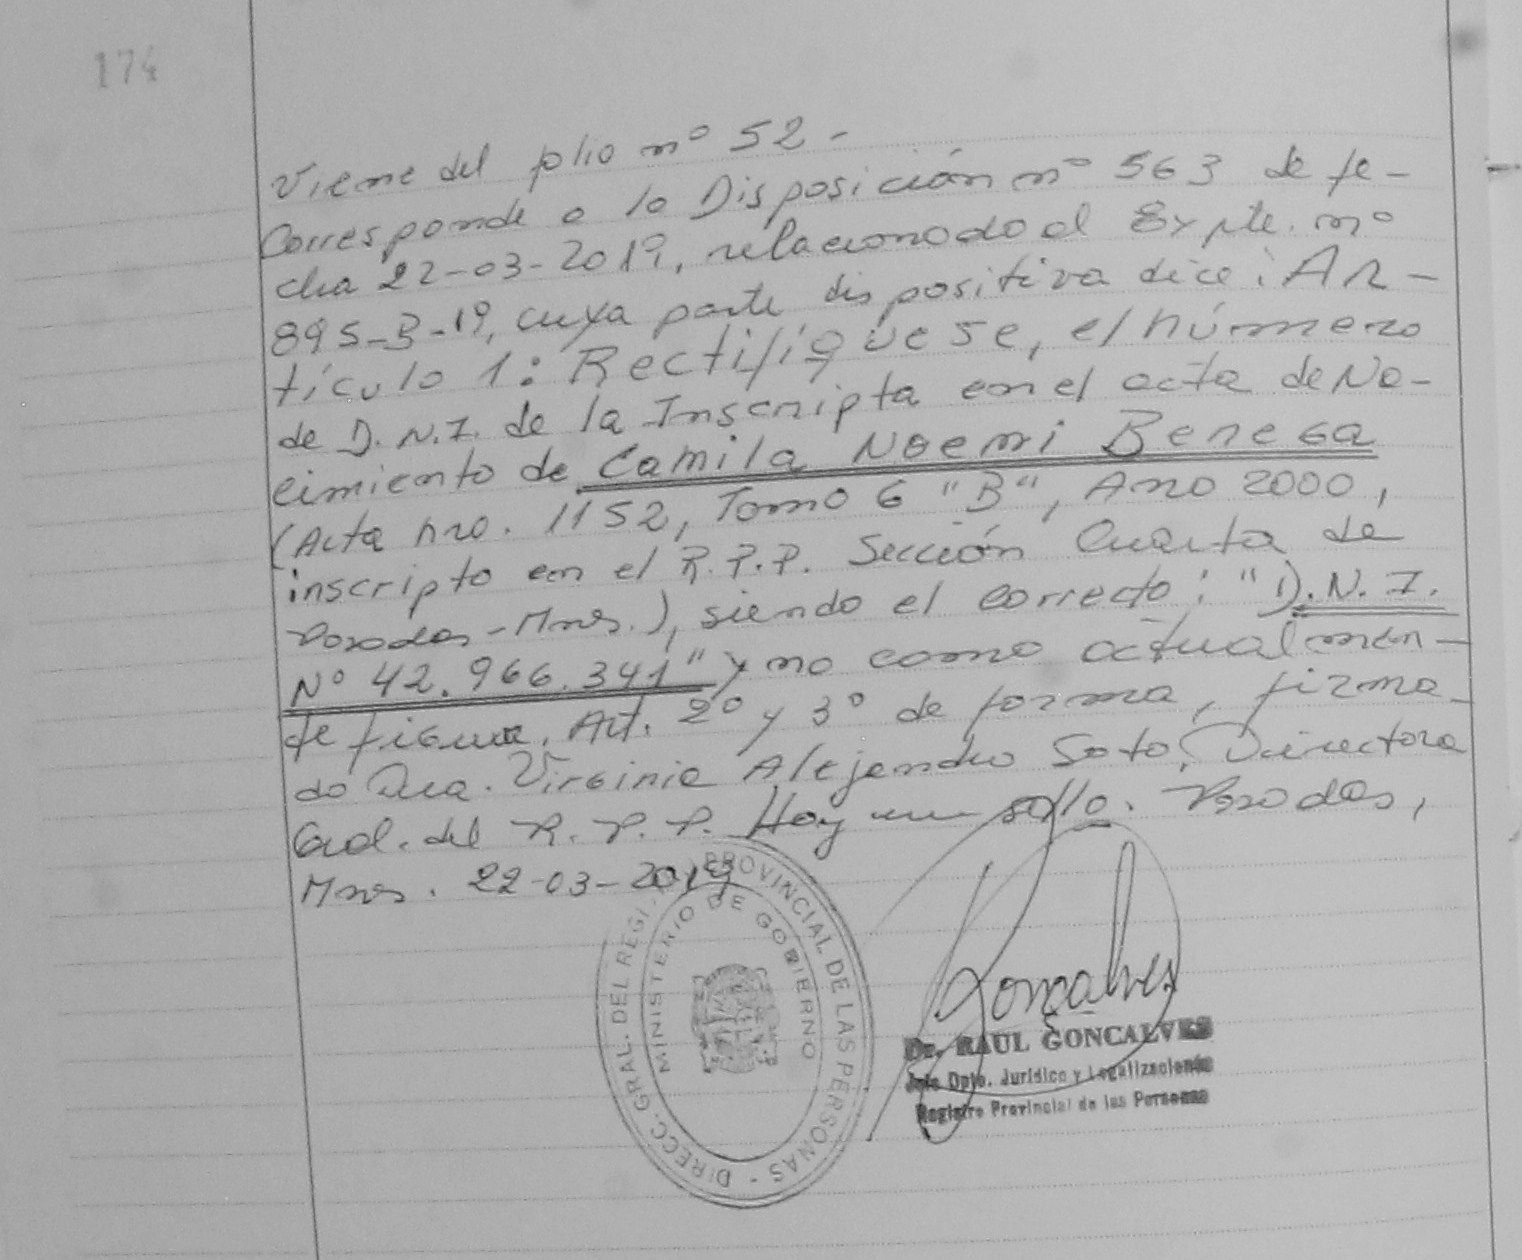 174
Viene del folio nº 52 -
Corresponde a la Disposición nº 563 de fe-
cha 22-03-2019, relacionado al Expte. nº
895-B-19, cuya parte dispositiva dice: AR-
tículo 1: Rectifíquese, el número
de D.N.I. de la Inscripta en el acta de Na-
cimiento de Camila Noemi Benega
(Acta nro. 1152, Tomo 6 "B", Año 2000,
inscripto en el R.P.P. Sección Cuarta de
Posadas-Mnes.), siendo el correcto: "D.N.I.
Nº 42.966.341" y no como actualmen-
te figura. Art. 2º y 3º de forma, firma-
do Dra. Virginia Alejandra Soto, Directora
Gral. del R.P.P. Hay un sello. Posadas,
Mnes. 22-03-2019
DIRECC. GRAL. DEL REGI. PROVINCIAL DE LAS PERSONAS -
MINISTERIO DE GOBIERNO
Gonçalves
Dr. RAUL GONCALVES
Jefe Dpto. Jurídico y Legalizaciones
Registro Provincial de las Personas